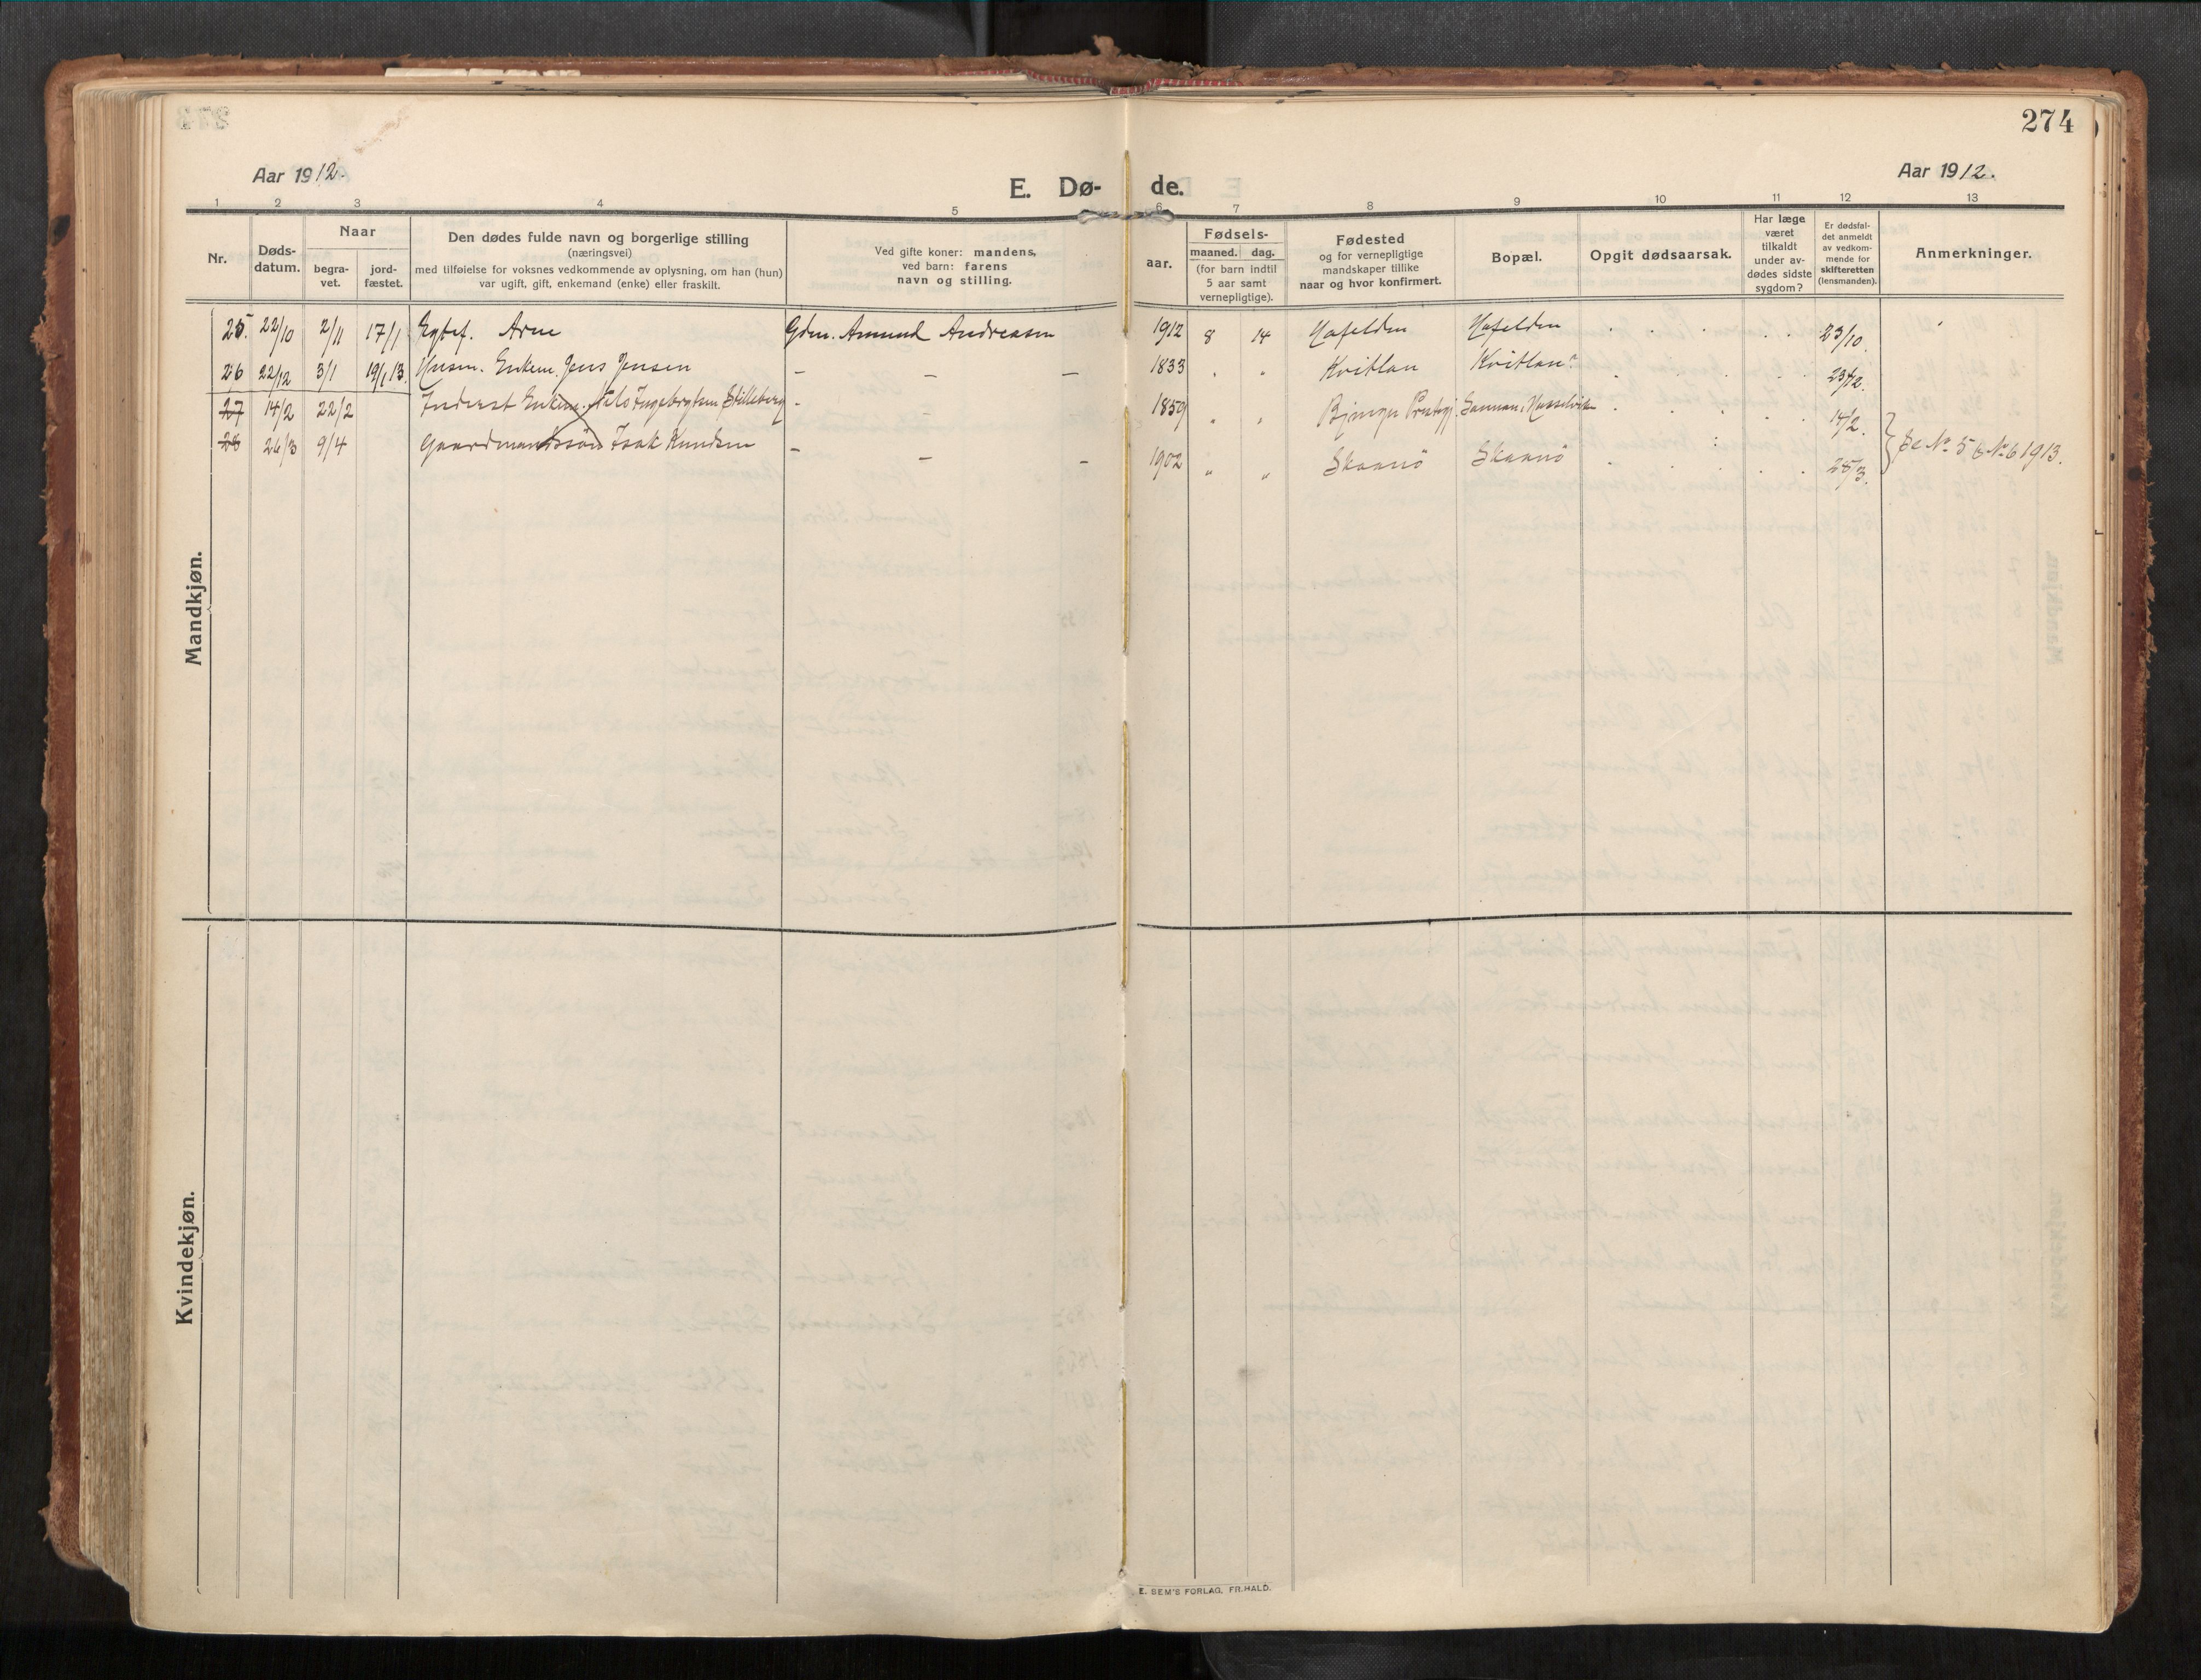 274
Aar 1912.
Aar 1912.
E. Dø- de.
1 2 3 4 5 6 7 8 9 10 11 12 13
Nr.
Døds-
datum.
Naar
begra-
vet.
jord-
fæstet.
Den dødes fulde navn og borgerlige stilling
(næringsvei)
med tilføielse for voksnes vedkommende av oplysning, om han (hun)
var ugift, gift, enkemand (enke) eller fraskilt.
Ved gifte koner: mandens,
ved barn: farens
navn og stilling.
Fødsels-
aar.
maaned. dag.
(for barn indtil
5 aar samt
vernepligtige).
Fødested
og for vernepligtige
mandskaper tillike
naar og hvor konfirmert.
Bopæl.
Opgit dødsaarsak.
Har læge
været
tilkaldt
under av-
dødes sidste
sygdom?
Er dødsfal-
det anmeldt
av vedkom-
mende for
skifteretten
(lensmanden).
Anmerkninger.
25. 22/10 2/11 17/1 Egtef. Arne Gdm. Amund Andreasen 1912 8 14 Hofelden Hofelden 23/10
26 22/12 3/1 19/1 13. Husm. Enkem. Jens Jensen - - - 1833 " " Kvitlan Kvitlan 23/12.
27 14/2 22/2 Inderst Enkem. Nils Ingebrigtsen Stilleberg - 1859 " " Bjugn Prestegj. Sannan, Hasselviken 14/2.
28 26/3 9/4 Gaardmandssøn Isak Knudsen - - - 1902 " " Skaanø Skaanø 28/3.
Se No 5 & No 6 1913.
Mandkjøn.
Kvindekjøn.
E. SEM'S FORLAG, FR.HALD.